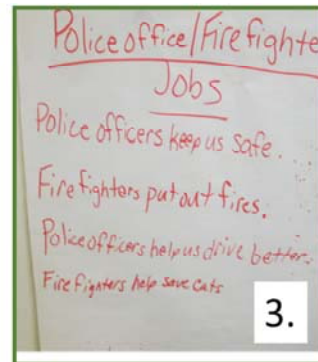 Police office/Fire fighte
Jobs
Police officers keep us safe.
Fire fighters put out fires.
Police officers help us drive better.
Fire fighters help save cats
3.